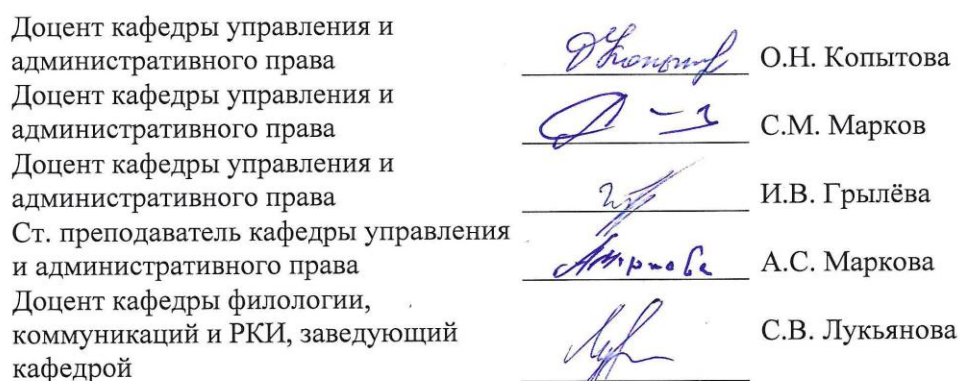 Доцент кафедры управления и
административного права О.Н. Копытова
Доцент кафедры управления и
административного права С.М. Марков
Доцент кафедры управления и
административного права И.В. Грылёва
Ст. преподаватель кафедры управления
и административного права А.С. Маркова
Доцент кафедры филологии,
коммуникаций и РКИ, заведующий С.В. Лукьянова
кафедрой